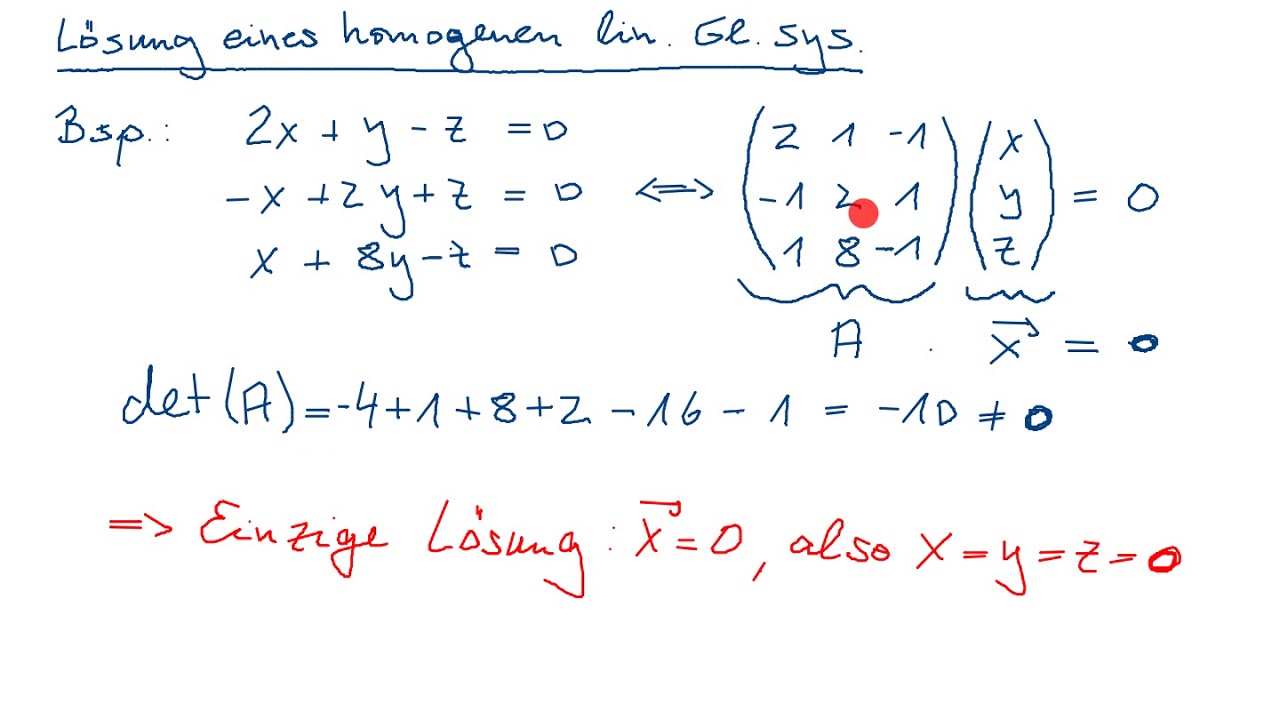 Lösung eines homogenen lin. Gl. sys.
Bsp.: 2x + y - z = 0
-x + 2y + z = 0 <=> ( 2 1 -1 ; -1 2 1 ; 1 8 -1 ) ( x ; y ; z ) = 0
x + 8y - z = 0
A . x⃗ = 0
det(A) = -4 + 1 + 8 + 2 - 16 - 1 = -10 ≠ 0
=> Einzige Lösung: x⃗ = 0, also x = y = z = 0